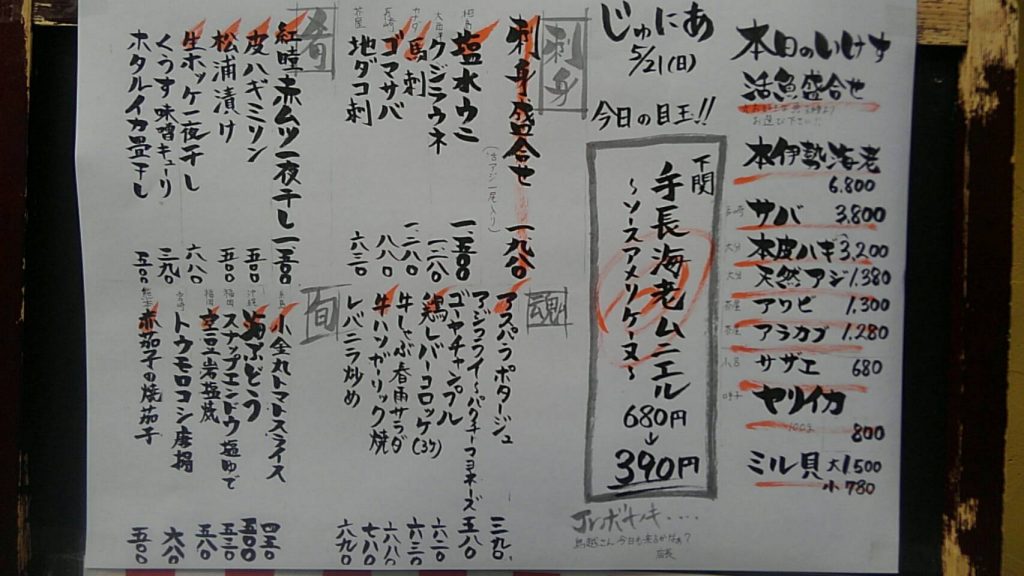 本日のいけす
活魚盛合せ
お選び下さい!!
本伊勢海老
6.800
サバ 3.800
大分 本皮ハギ 3,200
大分 天然アジ 1.380
アワビ 1,300
アラカブ 1.280
サザエ 680
ヤリイカ
100g 800
ミル貝 大1.500
小 780
じゅにあ
5/21(日)
今日の目玉!!
下関
手長海老ムニエル
〜ソースアメリケーヌ〜
680円
↓
390円
鳥越さん今日も走るかなぁ?
店長
刺身
刺身盛合せ 一.九八〇
(含アジ一尾入り)
塩水ウニ 一.五〇〇
クジラウネ 一.二八〇
馬刺 一.二八〇
長崎 ゴマサバ 八八〇
芦屋 地ダコ刺 六三〇
肴
紅瞳赤ムツ一夜干し 一.五〇〇
皮ハギミリン 五〇〇
松浦漬け 五〇〇
生ホッケ一夜干し 六八〇
くうす味噌キューリ 三九〇
ホタルイカ畳干し 五〇〇
魂
アスパラポタージュ 三九〇
アジフライ〜パクチーマヨネーズ 五八〇
ゴーヤチャンプル 六二〇
鶏レバーコロッケ(3ケ) 六三〇
牛しゃぶ春雨サラダ 六八〇
牛ハツガーリック焼 七八〇
レバニラ炒め 六九〇
旬
小金丸トマトスライス 四五〇
沖縄 海ぶどう 五〇〇
福岡 スナップエンドウ塩ゆで 五三〇
福岡 空豆岩塩焼 五八〇
宮崎 トウモロコシ唐揚 六八〇
熊本 赤茄子の焼茄子 五〇〇